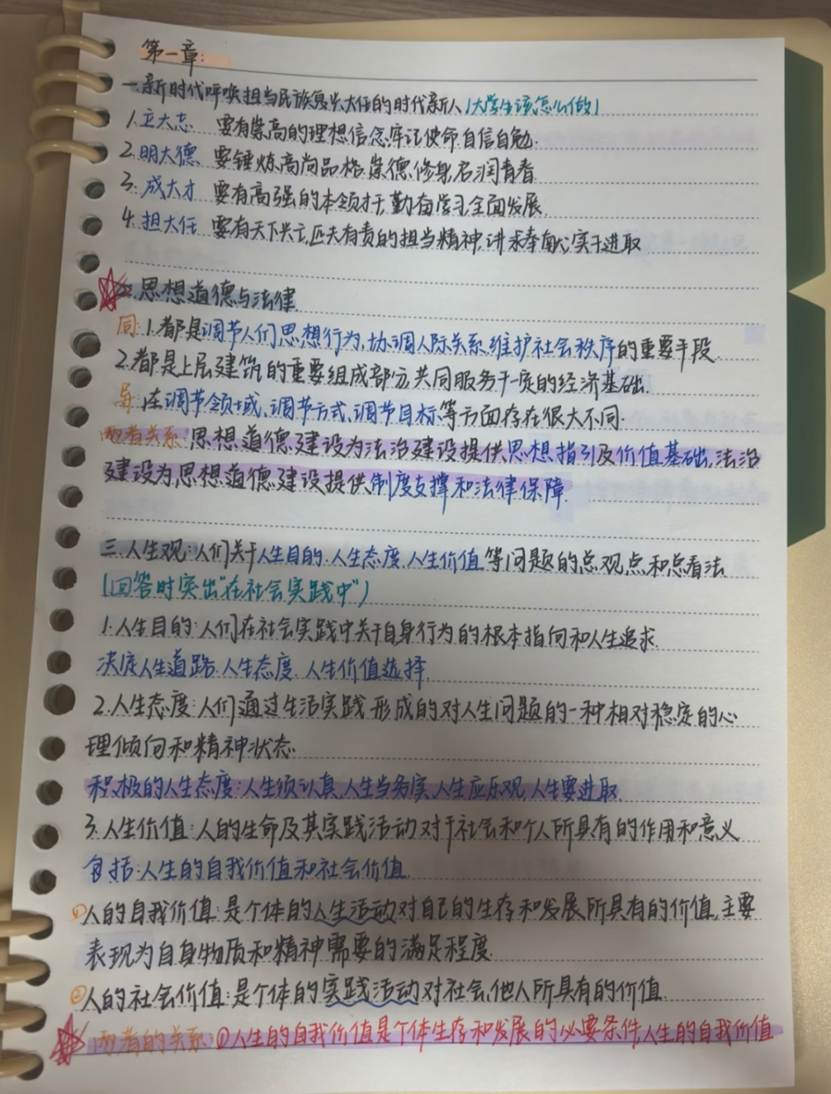 第一章:
一.新时代呼唤担当民族复兴大任的时代新人(大学生该怎么做)
1.立大志 要有崇高的理想信念,牢记使命,自信自勉.
2.明大德 要锤炼高尚品格,崇德修身,启润青春
3.成大才 要有高强的本领才干,勤奋学习,全面发展.
4.担大任 要有天下兴亡,匹夫有责的担当精神,讲求奉献,实干进取
二.思想道德与法律
同:1.都是调节人们思想行为,协调人际关系,维护社会秩序的重要手段.
2.都是上层建筑的重要组成部分,共同服务于一定的经济基础.
异:在调节领域、调节方式、调节目标等方面存在很大不同.
两者关系:思想道德建设为法治建设提供思想指引及价值基础,法治
建设为思想道德建设提供制度支撑和法律保障.
三.人生观:人们关于人生目的、人生态度、人生价值等问题的总观点和总看法
(回答时突出“在社会实践中”)
1.人生目的:人们在社会实践中关于自身行为的根本指向和人生追求.
决定人生道路、人生态度、人生价值选择.
2.人生态度:人们通过生活实践形成的对人生问题的一种相对稳定的心
理倾向和精神状态.
积极的人生态度:人生须认真、人生当务实、人生应乐观、人生要进取.
3.人生价值:人的生命及其实践活动对于社会和个人所具有的作用和意义
包括:人生的自我价值和社会价值.
①人的自我价值:是个体的人生活动对自己的生存和发展所具有的价值,主要
表现为自身物质和精神需要的满足程度.
②人的社会价值:是个体的实践活动对社会、他人所具有的价值.
两者的关系:①人生的自我价值是个体生存和发展的必要条件,人生的自我价值